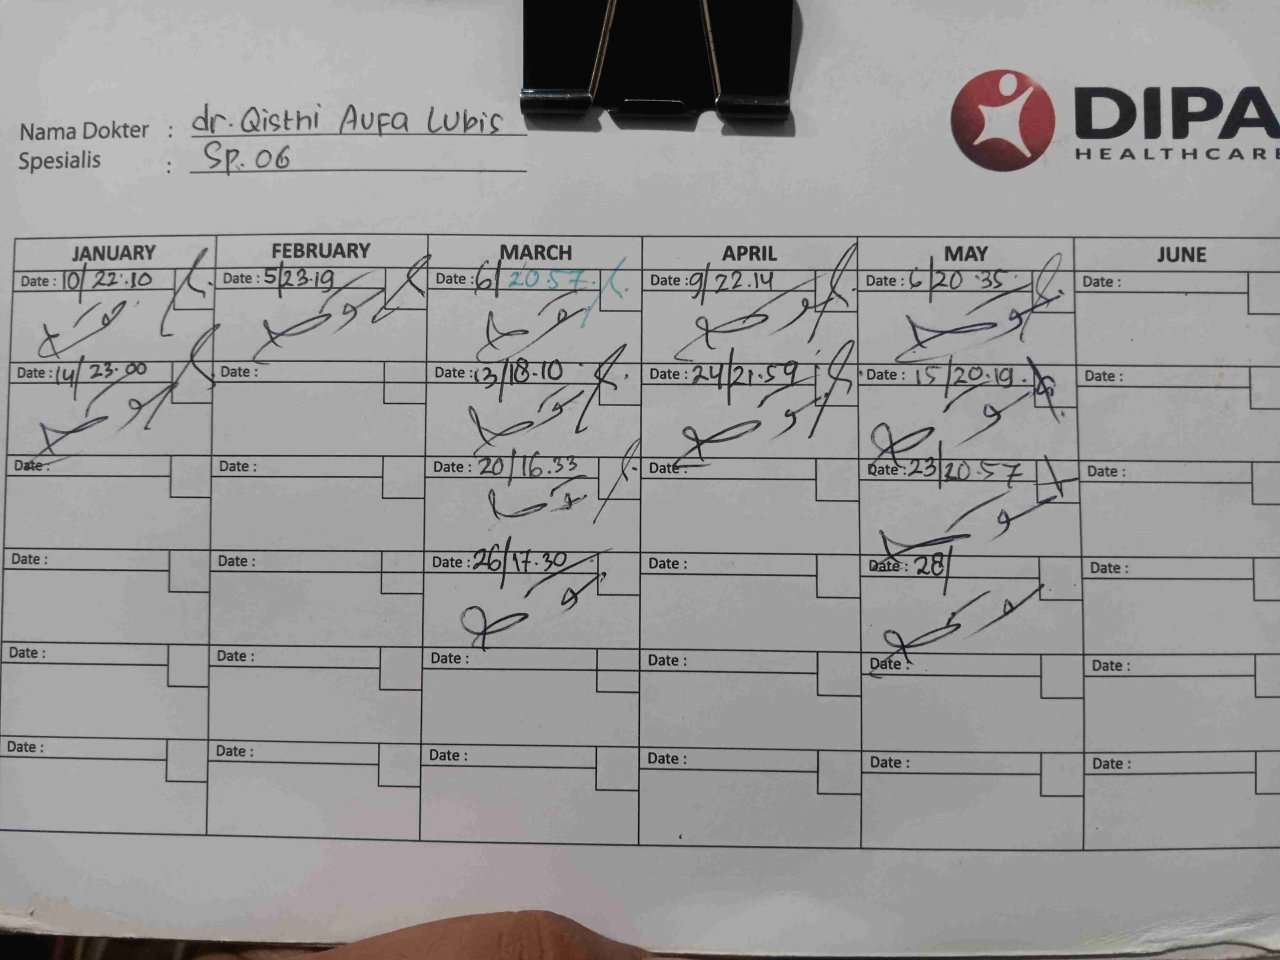 Nama Dokter : dr. Qisthi Aufa Lubis
Spesialis : Sp. OG
DIPA
HEALTHCARE
JANUARY FEBRUARY MARCH APRIL MAY JUNE
Date : 10/ 22.10 Date : 5/23.19 Date : 6/ 20.57 Date : 9/ 22.14 Date : 6/20.35 Date :
Date : 14/ 23.00 Date : Date : 13/18.10 Date : 24/21.59 Date : 15/20.19 Date :
Date : Date : Date : 20/16.33 Date : Date : 23/20.57 Date :
Date : Date : Date : 26/17.30 Date : Date : 28/ Date :
Date : Date : Date : Date : Date : Date :
Date : Date : Date : Date : Date : Date :